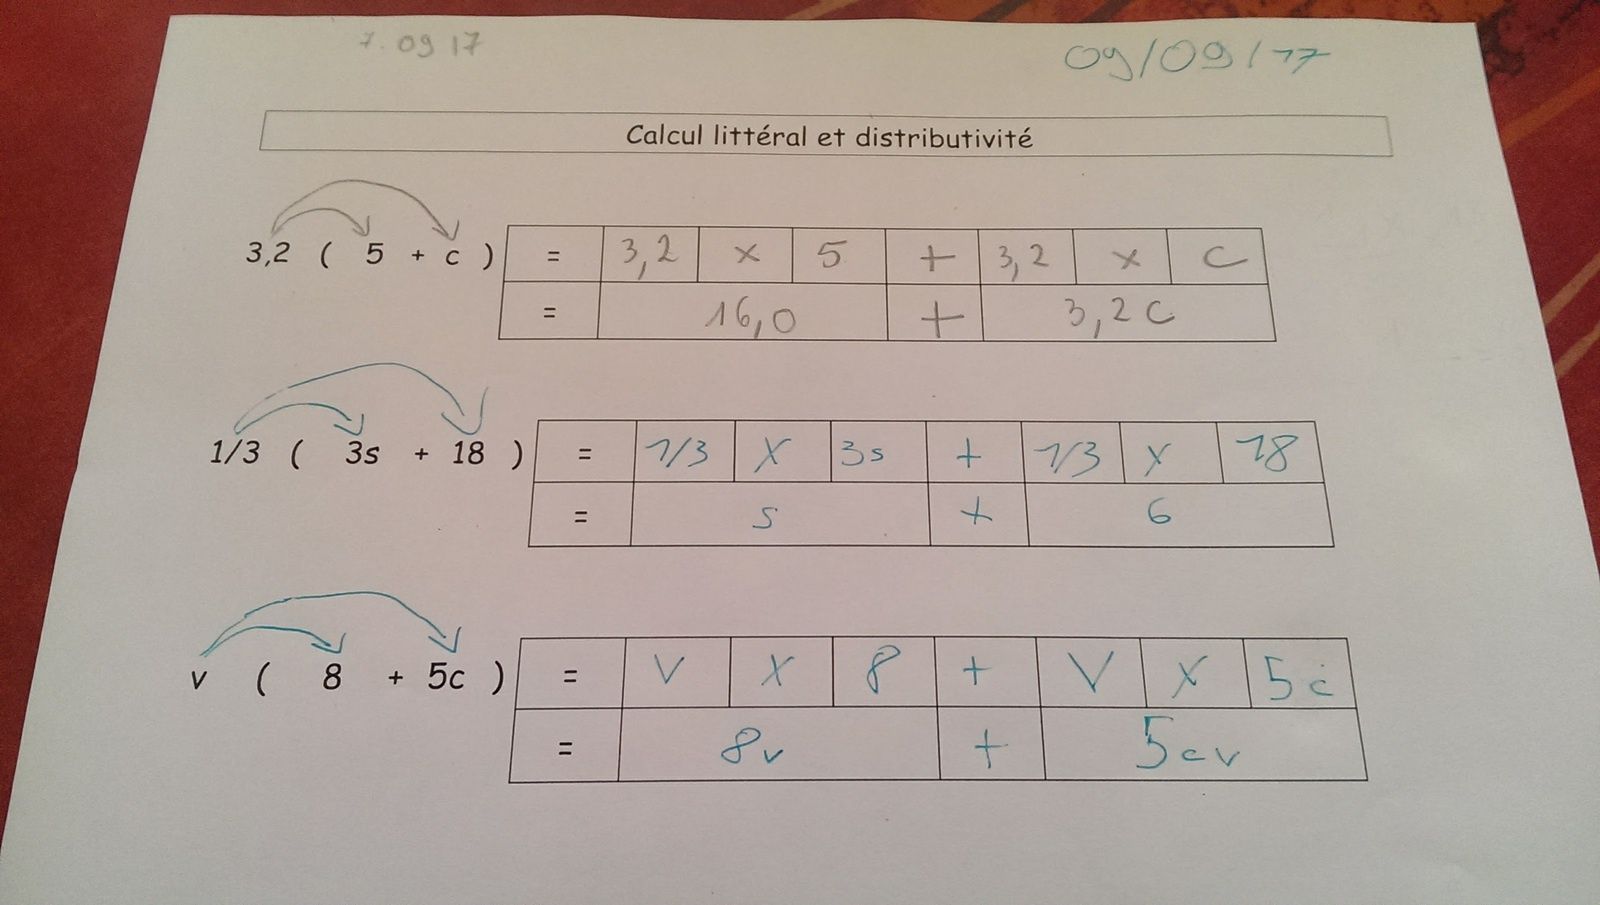 7.09 17
09/09/17
Calcul littéral et distributivité
3,2 ( 5 + c ) = 3,2 x 5 + 3,2 x c
= 16,0 + 3,2c
1/3 ( 3s + 18 ) = 1/3 X 3s + 1/3 x 18
= s + 6
v ( 8 + 5c ) = V X 8 + V X 5c
= 8v + 5cv